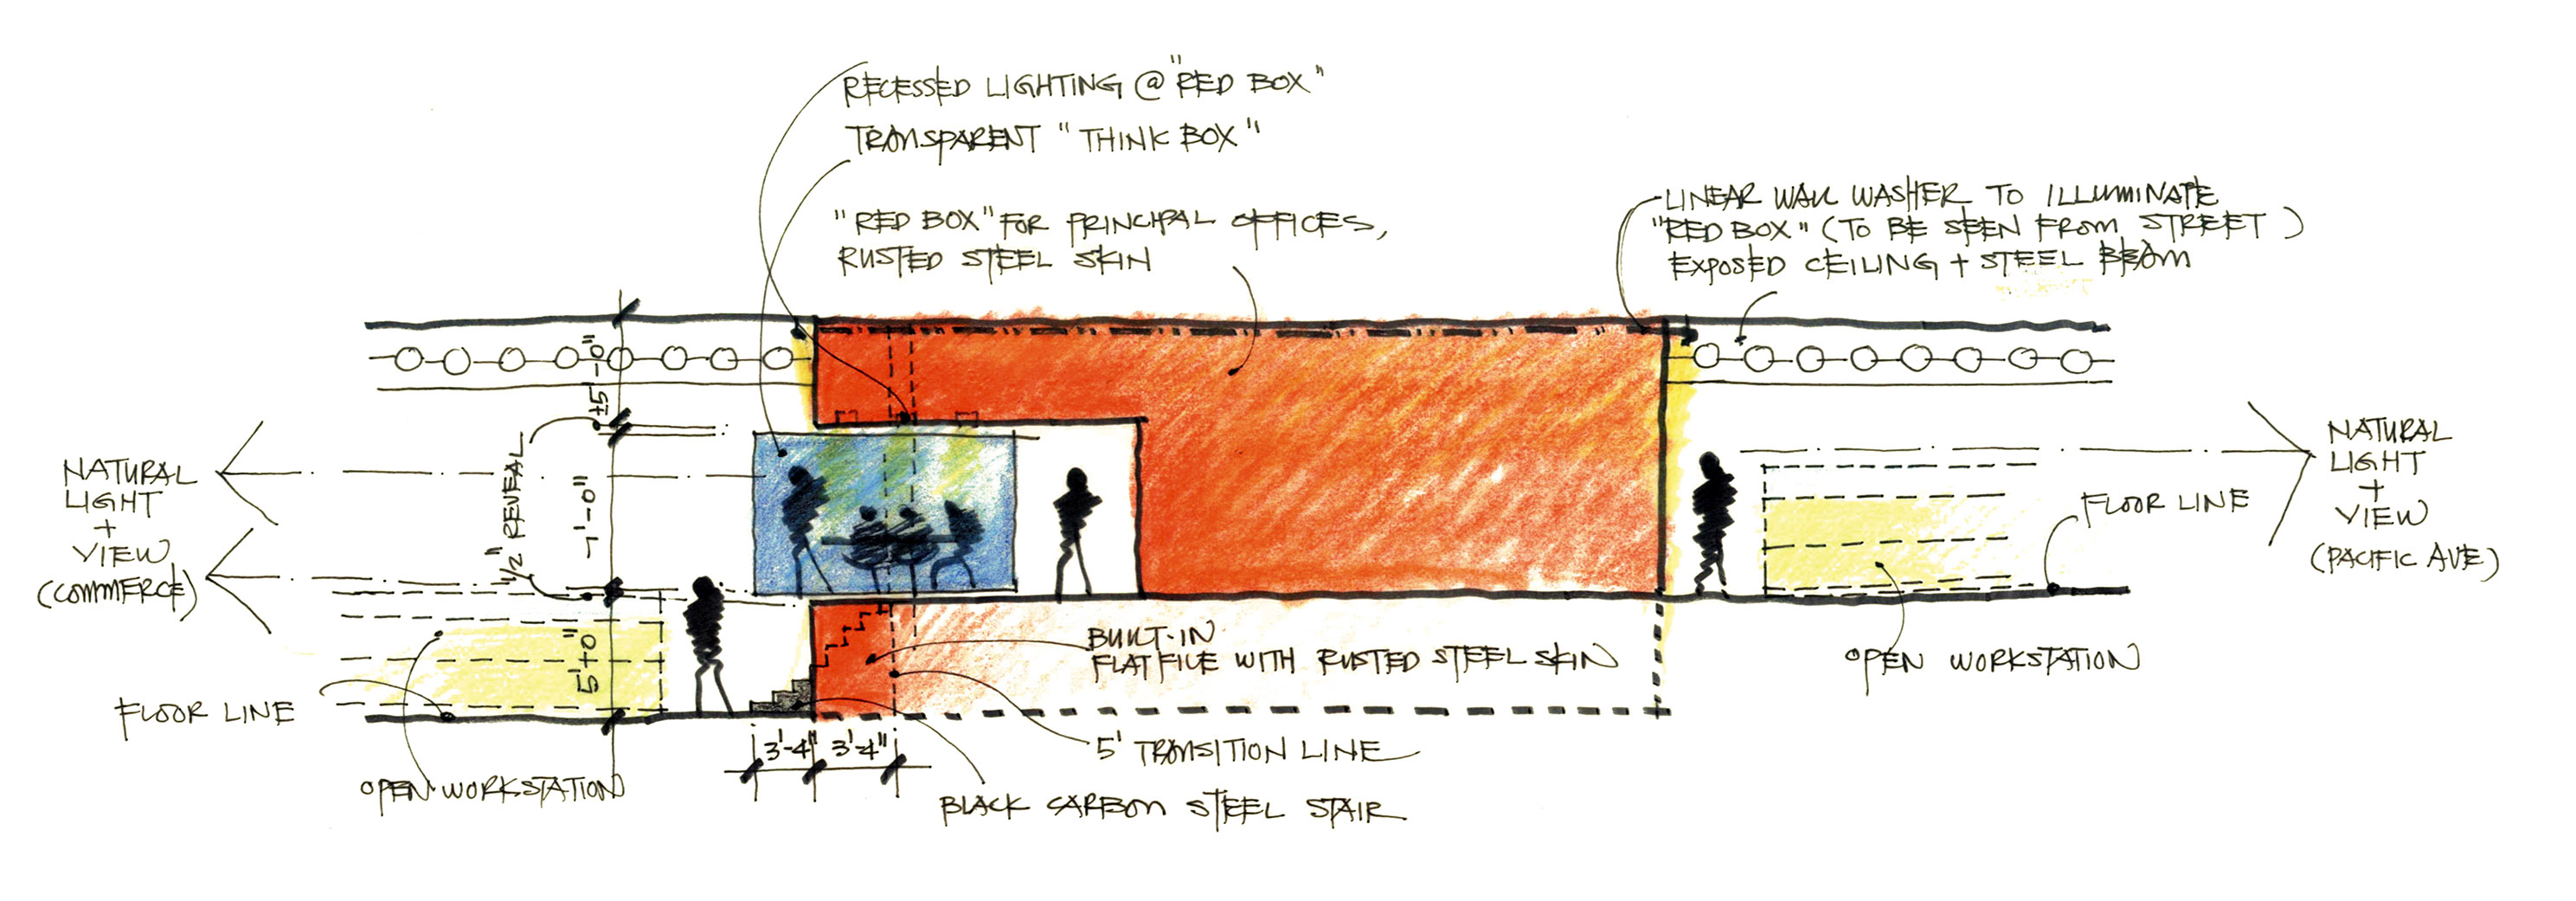 RECESSED LIGHTING @ "RED BOX"
TRANSPARENT "THINK BOX"
"RED BOX" FOR PRINCIPAL OFFICES,
RUSTED STEEL SKIN
LINEAR WALL WASHER TO ILLUMINATE
"RED BOX" (TO BE SEEN FROM STREET)
EXPOSED CEILING + STEEL BEAM
±5'-0"
1/2" REVEAL
5'+0"
NATURAL
LIGHT
+
VIEW
(COMMERCE)
NATURAL
LIGHT
+
VIEW
(PACIFIC AVE)
FLOOR LINE
BUILT-IN
FLAT FILE WITH RUSTED STEEL SKIN
OPEN WORKSTATION
FLOOR LINE
3'-4"
3'-4"
5' TRANSITION LINE
OPEN WORKSTATION
BLACK CARBON STEEL STAIR